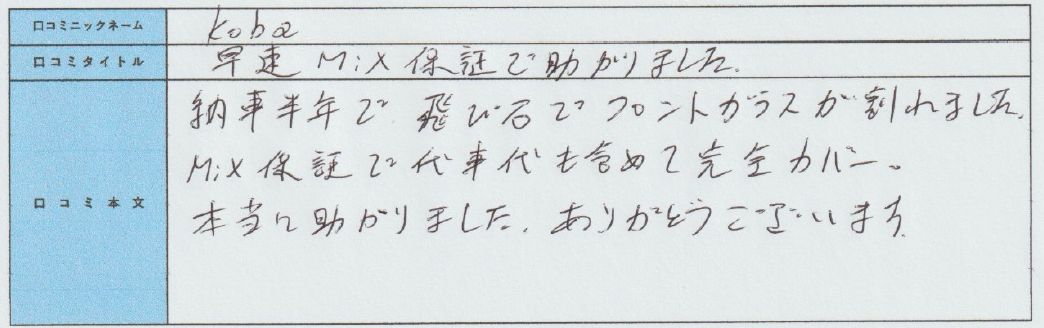 口コミニックネーム koba
口コミタイトル 早速 Mix 保証で助かりました.
納車半年で 飛び石でフロントガラスが割れました.
口コミ本文 Mix 保証で代車代も含めて完全カバー。
本当に助かりました. ありがとうございます.